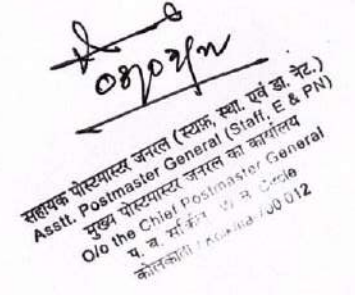 सहायक पोस्टमास्टर जनरल (स्टाफ़, स्था. एवं डा. नेट.)
Asstt. Postmaster General (Staff, E & PN)
मुख्य पोस्टमास्टर जनरल का कार्यालय
O/o the Chief Postmaster General
प. ब. Circle
कोलकाता / 700 012